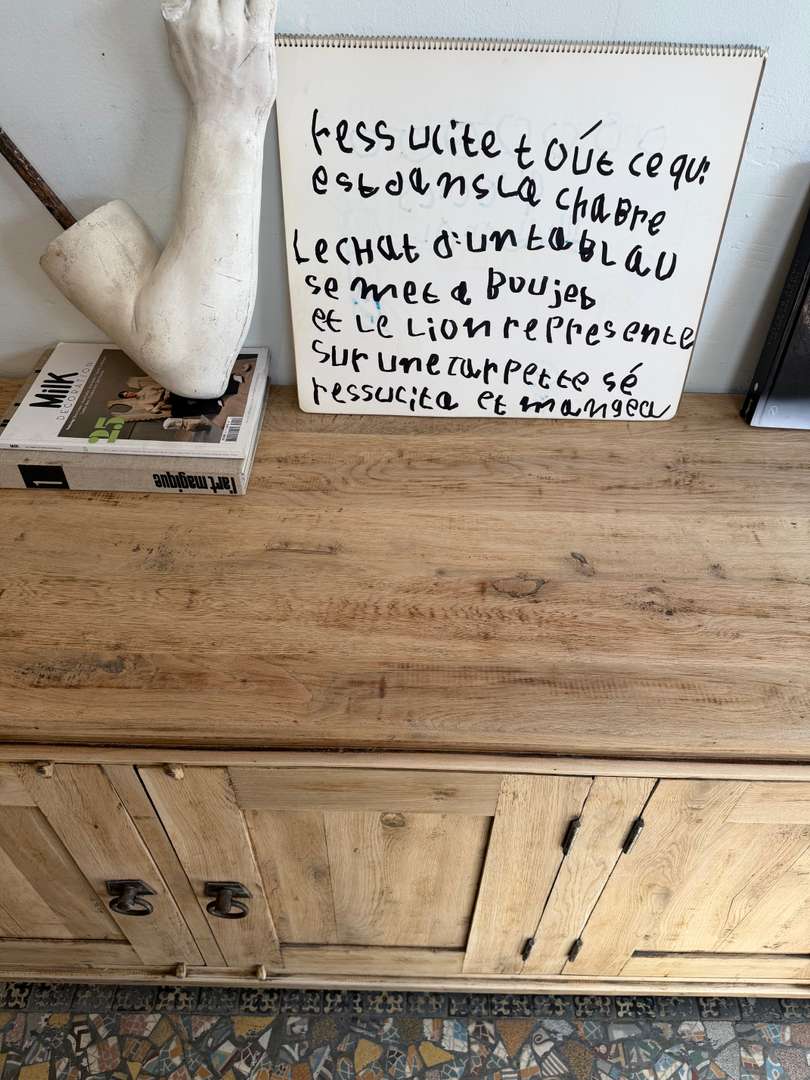 ressucite toút ce qui
est dans la chabre
Le cHat d'un tabLaU
se met a Boujeb
et Le Lion represente
sur une carpette sé
ressucita et mangea
MilK
DECORATION
55
l'art magique
1